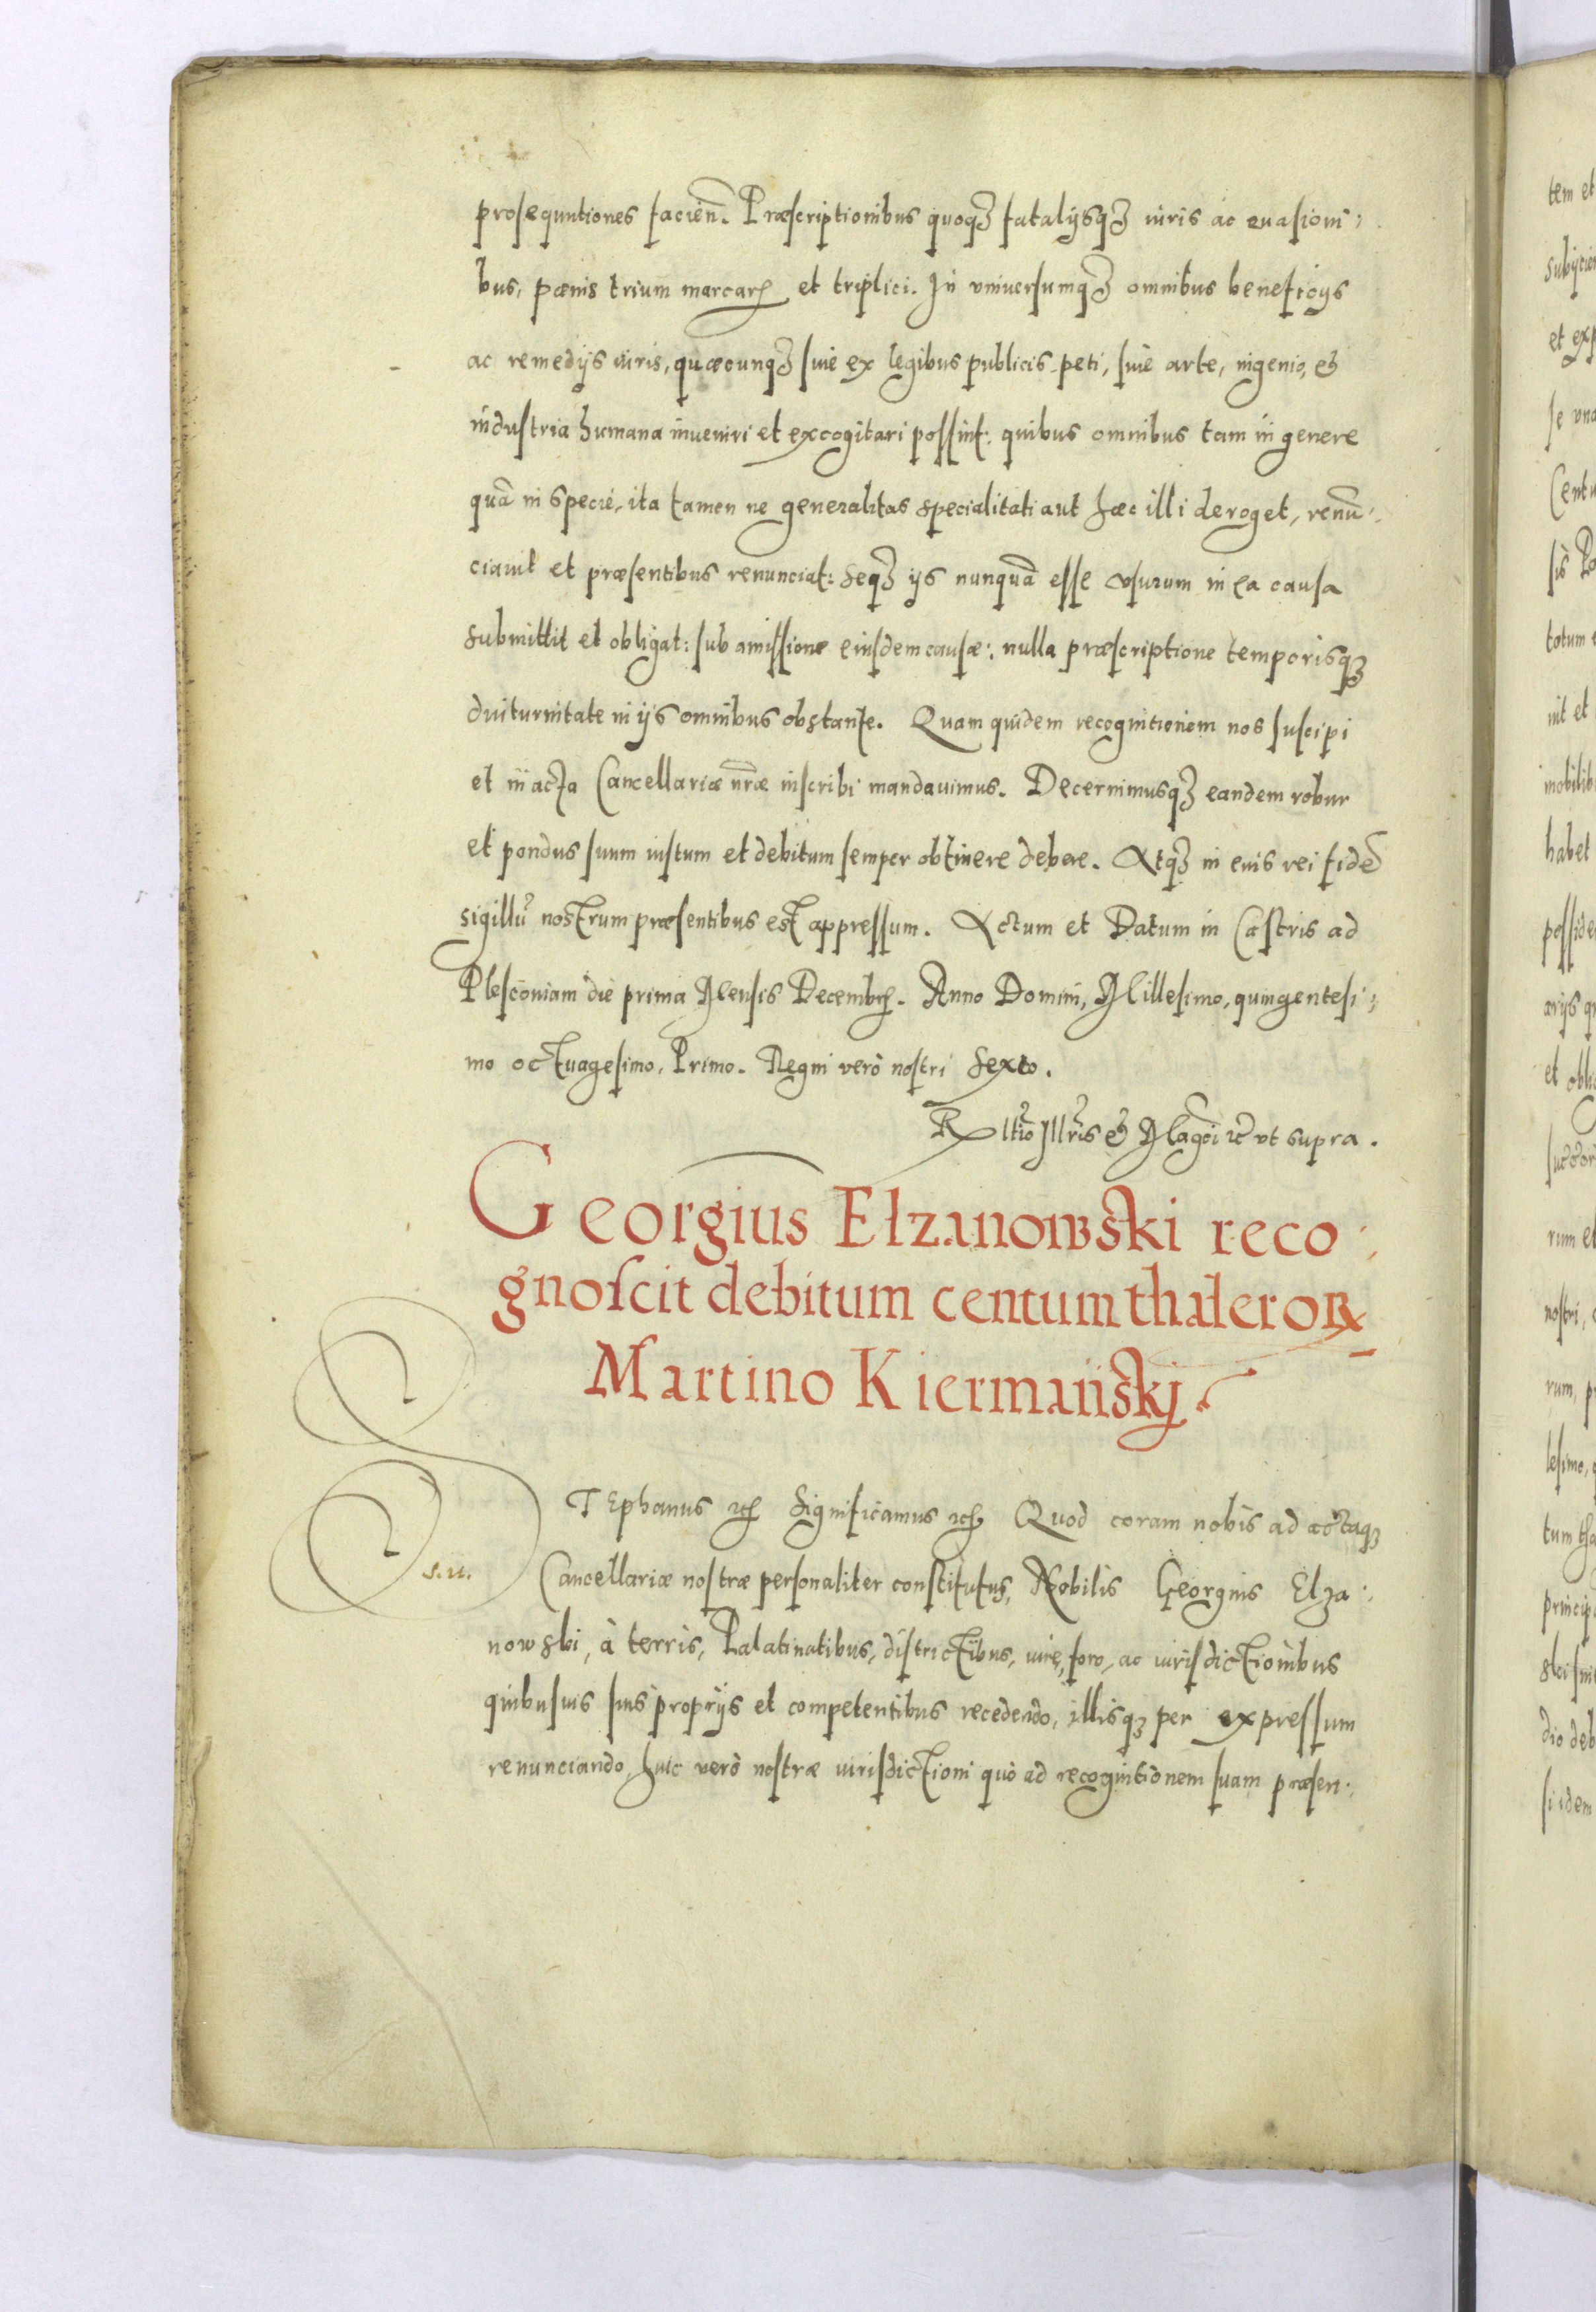 prosequutiones facien̄. Præscriptionibus quoqȝ fatalÿsqȝ iuris ac euasioni:
bus, pœnis trium marcarꝝ et triplici. In vniuersumqȝ omnibus beneficÿs
ac remedÿs iuris, quæcunqȝ siue ex legibus publicis peti, siue arte, ingenio, &
industria humana inueniri et excogitari possint: quibus omnibus tam in genere
quā in specie, ita tamen ne generalitas specialitati aut hæc illi deroget, renū:
ciauit et præsentibus renunciat: seqȝ ÿs nunquā esse vsurum in ea causa
submittit et obligat: sub amissione eiusdem causæ: nulla præscriptione temporisqȝ
diuturnitate in ÿs omnibus obstante. Quam quidem recognitionem nos suscipi
et in acta Cancellariæ nr̄æ inscribi mandauimus. Decernimusqȝ eandem robur
et pondus suum iustum et debitum semper obtinere debere. Atqȝ in euis rei fidē
sigillū nostrum præsentibus est appressum. Actum et Datum in Castris ad
Plesconiam die prima Mensis Decembrꝭ. Anno Domini, Millesimo, quingentesi:
mo octuagesimo, Primo. Regni verò nostri Sexto.
Rltio Illrīs & Magci ꝛc̄ vt supra.
Georgius Elzanowski reco:
gnoscit debitum centum thaleroꝝ
Martino Kiermański.
STephanus ꝛcꝭ Significamus ꝛcꝭ Quod coram nobis ad actaqȝ
s. n. Cancellariæ nostræ personaliter constitutus, Nobilis Georgius Elza:
nowski, à terris, Palatinatibus, districtibus, iure, foro, ac iurisdictionibus
quibusuis suis proprÿs et competentibus recedendo, illisqȝ per expressum
renunciando, huic verò nostræ iurisdictioni quò ad recognitionem suam præsen:
tem et
et exp
se vna
Centu
totum e
nit et
habet
et obli
rum et
nostri,
rum, p
lesimo,
tum tha
dio deb
si idem